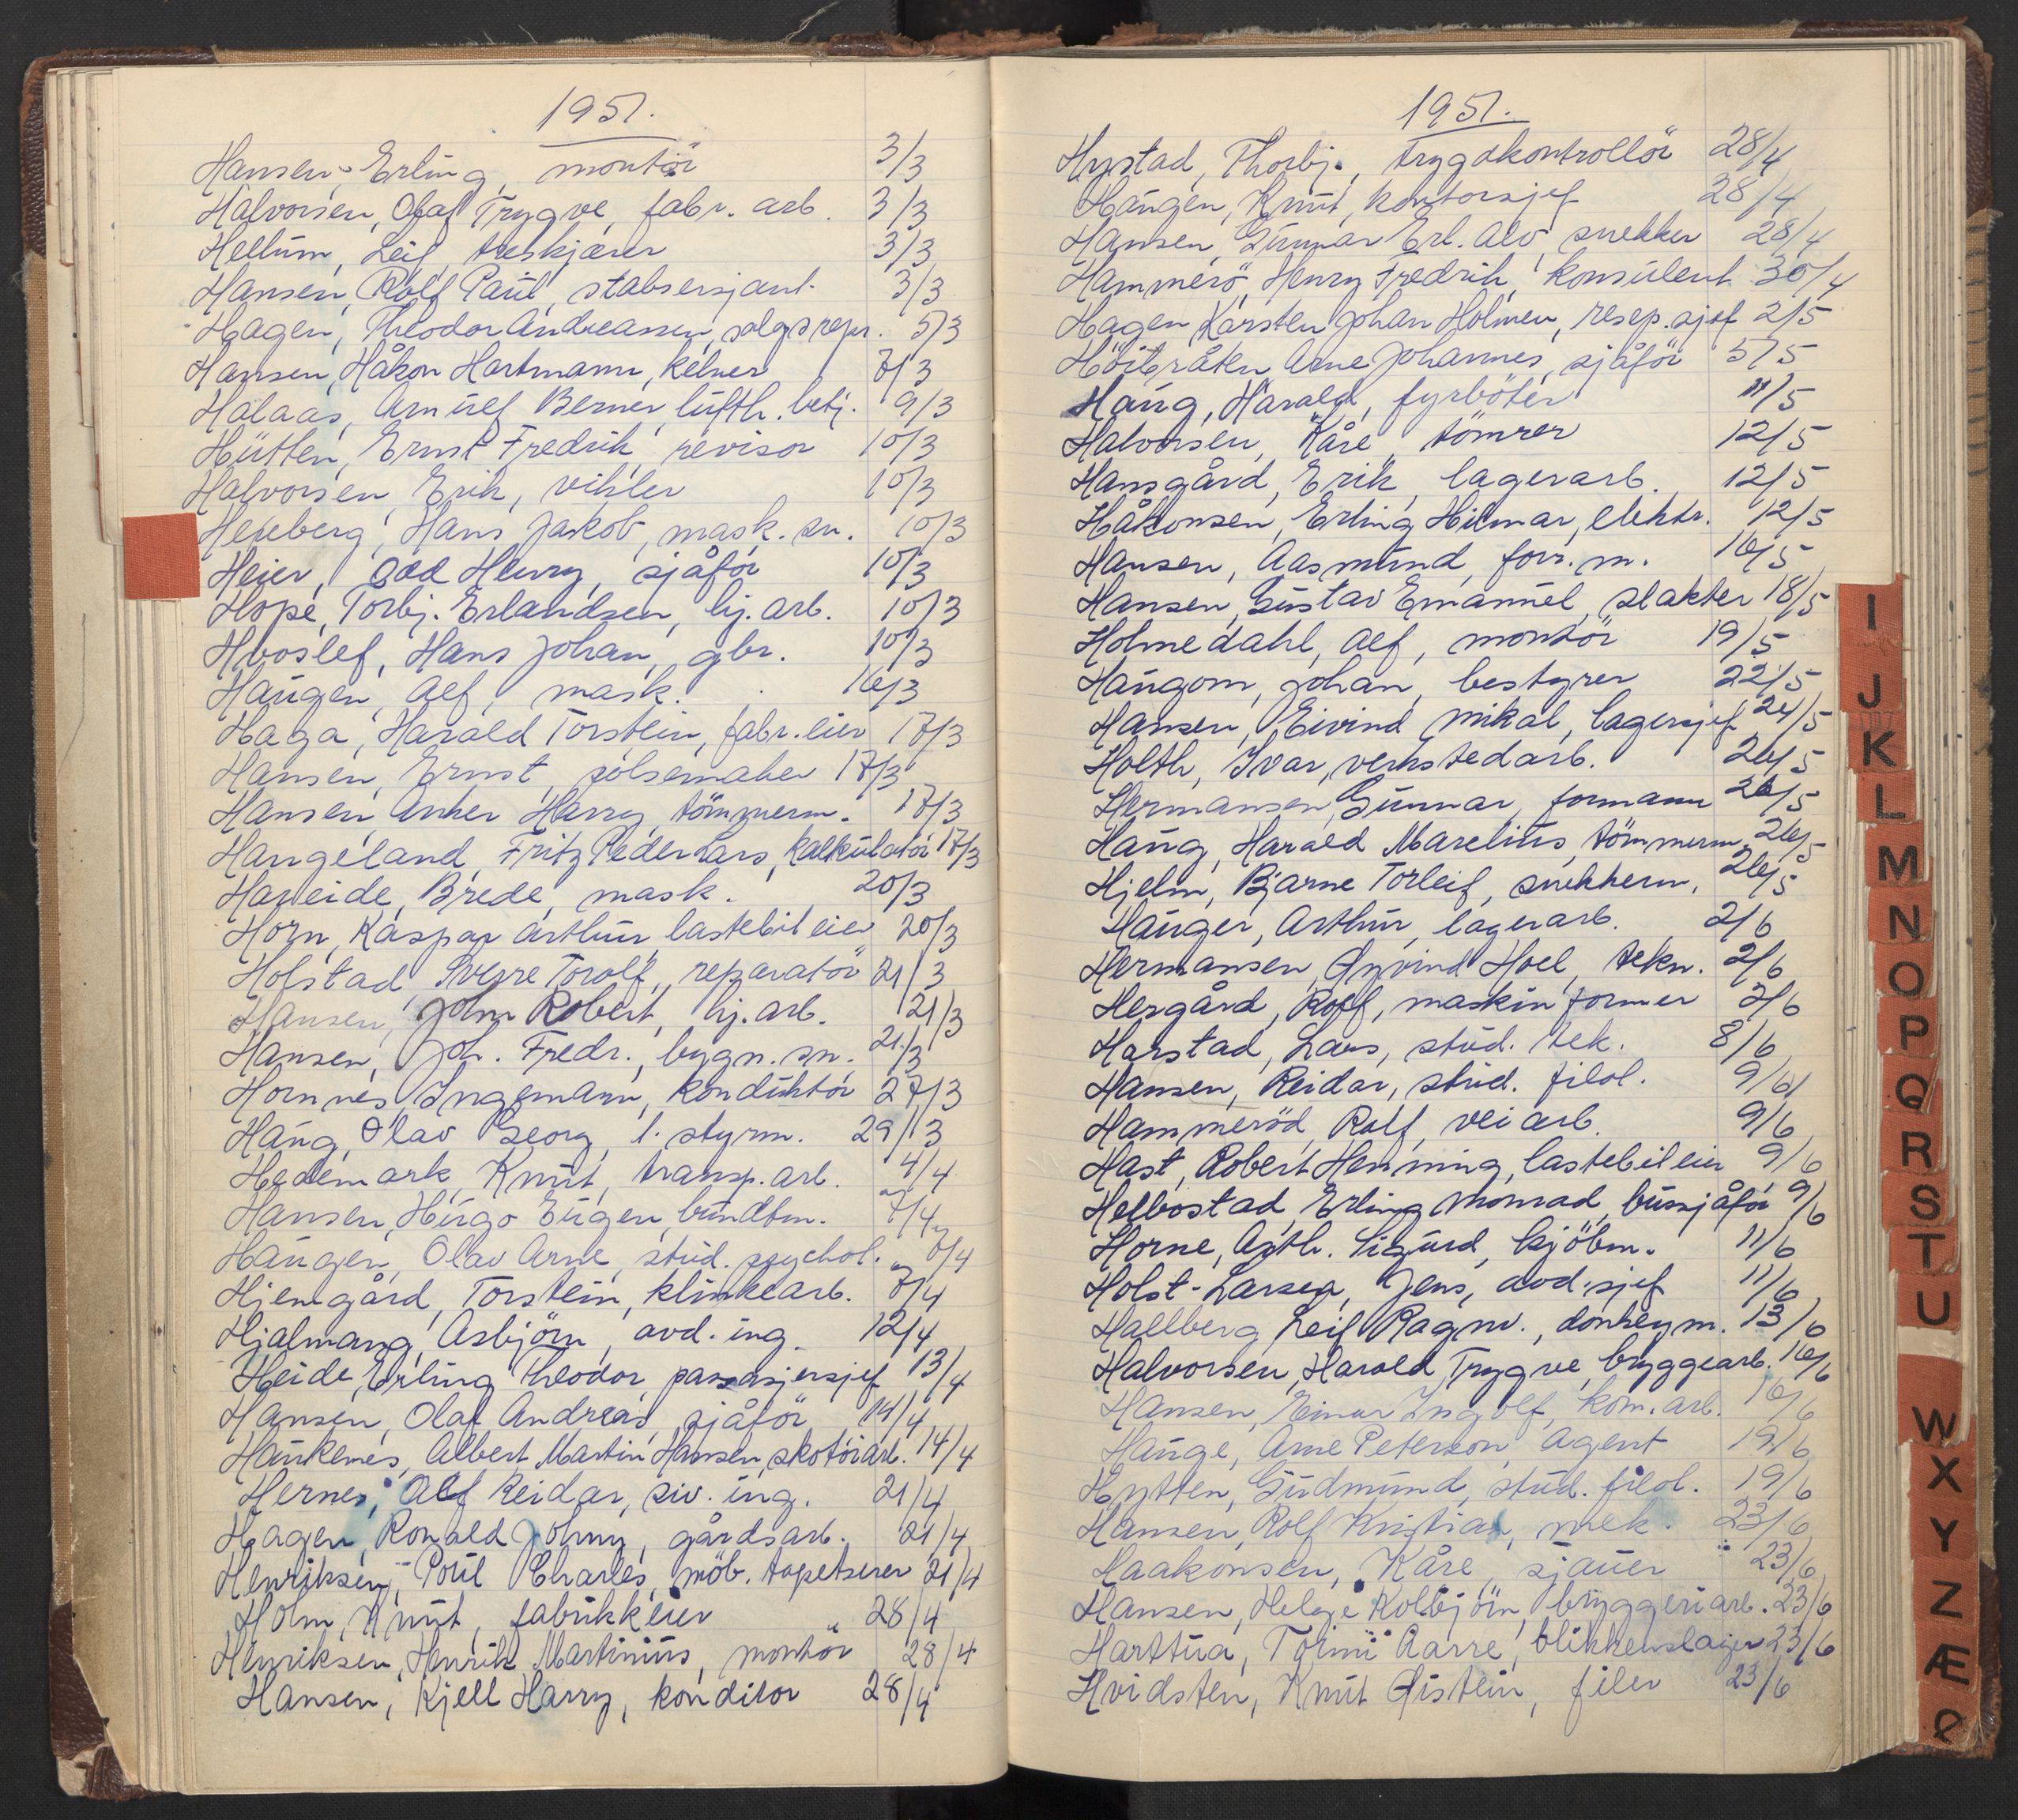 1951.
Hansen, Erling, montör 3/3
Halvorsen, Olaf Trygve, fabr. arb. 3/3
Hellum, Leif, treskjærer 3/3
Hansen, Rolf Paul, stabsersjant 3/3
Hagen, Theodor Andreassen, salgsrepr. 5/3
Hansen, Håkon Hartmann, kelner 7/3
Halaas, Arnulf Berner, lufth. betj. 9/3
Hütten, Ernst Fredrik, revisor 10/3
Halvorsen, Erik, vikler 10/3
Hexeberg, Hans Jakob, mask. sn. 10/3
Heier, Odd Henry, sjåför 10/3
Hope, Torbj. Erlandsen, hj. arb. 10/3
Hvoslef, Hans Johan, gbr. 10/3
Haugen, Alf, mask. 16/3
Haga, Harald Torstein, fabr. eier 17/3
Hansen, Ernst, pölsemaker 17/3
Hansen, Anker Harry, tömmerm. 17/3
Haugeland, Fritz Peder Lars, kalkulatör 17/3
Haneide, Brede, mask. 20/3
Horn, Kaspar Arthur, lastebileier 20/3
Hofstad, Sverre Torolf, reparatör 21/3
Hansen, John Robert, hj. arb. 21/3
Hansen, Joh. Fredr., bygn. sn. 21/3
Hornnes, Ingemann, konduktör 27/3
Haug, Olav Georg, 1. styrm. 29/3
Hedemark, Knut, transp. arb. 4/4
Hansen, Hugo Eugen, bundtm. 7/4
Haugen, Olav Arne, stud. psychol. 7/4
Hjemgård, Torstein, klinkearb. 7/4
Hjalmang, Asbjörn, avd. ing. 12/4
Heide, Erling Theodor, passasjersjef 13/4
Hansen, Olaf Andreas, sjåför 14/4
Haukenes, Albert Martin Hansen, skotöiarb. 14/4
Hernes, Alf Reidar, siv. ing. 21/4
Hagen, Ronald Johny, gårdsarb. 21/4
Henriksen, Poul Charles, möb. tapetserer 21/4
Holm, Knut, fabrikkeier 28/4
Henriksen, Henrik Martinius, montör 28/4
Hansen, Kjell Harry, konditor 28/4
1951.
Hystad, Thorbj., trygdkontrollör 28/4
Haugen, Knut, kontorsjef 28/4
Hansen, Gunnar Erl. Alv, snekker 28/4
Hammerö, Henry Fredrik, konsulent 30/4
Hagen, Karsten Johan Holmen, resep. sjef 2/5
Höibråten, Arne Johannes, sjåför 5/5
Haug, Harald, fyrböter 11/5
Halvorsen, Kåre, tömrer 12/5
Hansgård, Erik, lagerarb. 12/5
Håkonsen, Erling Hilmar, elektr. 12/5
Hansen, Aasmund, forr. m. 16/5
Hansen, Gustav Emanuel, slakter 18/5
Holmedahl, Alf, montör 19/5
Haugom, Johan, bestyrer 22/5
Hansen, Eivind Mikal, lagersjef 24/5
Holth, Ivar, verkstedarb. 26/5
Hermansen, Gunnar, formann 26/5
Haug, Harald Marelius, tömmerm. 26/5
Hjelm, Bjarne Torleif, snekkerm. 26/5
Hauger, Arthur, lagerarb. 2/6
Hermansen, Øyvind Hoel, tekn. 2/6
Hergård, Rolf, maskinformer 2/6
Harstad, Lars, stud. tek. 8/6
Hansen, Reidar, stud. filol. 9/6
Hammeröd, Rolf, veiarb. 9/6
Hast, Robert Henning, lastebileier 9/6
Helbostad, Erling Monrad, bussjåför 9/6
Horne, Arth. Sigurd, kjöbm. 11/6
Holst-Larsen, Jens, avd. sjef 11/6
Hallberg, Leif Ragnv., donkeym. 13/6
Halvorsen, Harald Trygve, bryggearb. 16/6
Hansen, Einar Ingolf, kom. arb. 16/6
Hauge, Arne Peterson, Agent 19/6
Hytten, Gudmund, stud. filol. 19/6
Hansen, Rolf Kristian, mek. 23/6
Haakonsen, Kåre, sjauer 23/6
Hansen, Helge Kolbjörn, bryggeriarb. 23/6
Harttua, Toimi Aarre, blikkenslager 23/6
Hvidsten, Knut Øistein, filer 23/6
I
J
K
L
M
N
O
P
Q
R
S
T
U
W
X
Y
Z
Æ
Ø